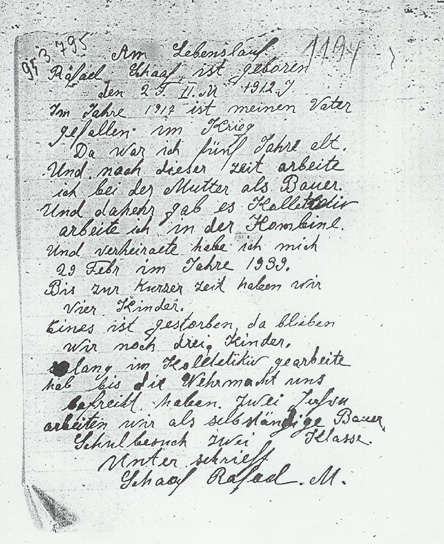 95 3.795
1194
Am Lebenslauf
Rafael Schaaf ist geboren
den 2.J. II.M 1912.J
Im Jahre 1917 ist meinen Vater
gefallen im Krieg
Da war ich fünf Jahre alt.
Und nach dieser zeit arbeite
ich bei der Mutter als Bauer.
Und dahehr gab es Kollektiv
arbeite ich in der Kombine.
Und verheiraete habe ich mich
29 Febr im Jahre 1939.
Bis zur Kurzer zeit haben wir
vier Kinder.
Eines ist gestorben, da blieben
wir noch dreig Kinder.
solang im Kolldetikiv gearbeite
hab bis die Wehrmacht uns
befreiht haben. zwei
arbeiten wir als selbständige Bauer
Schulbesuch zwei Klasse.
Unter schrieft
Schaaf Rafael. M.